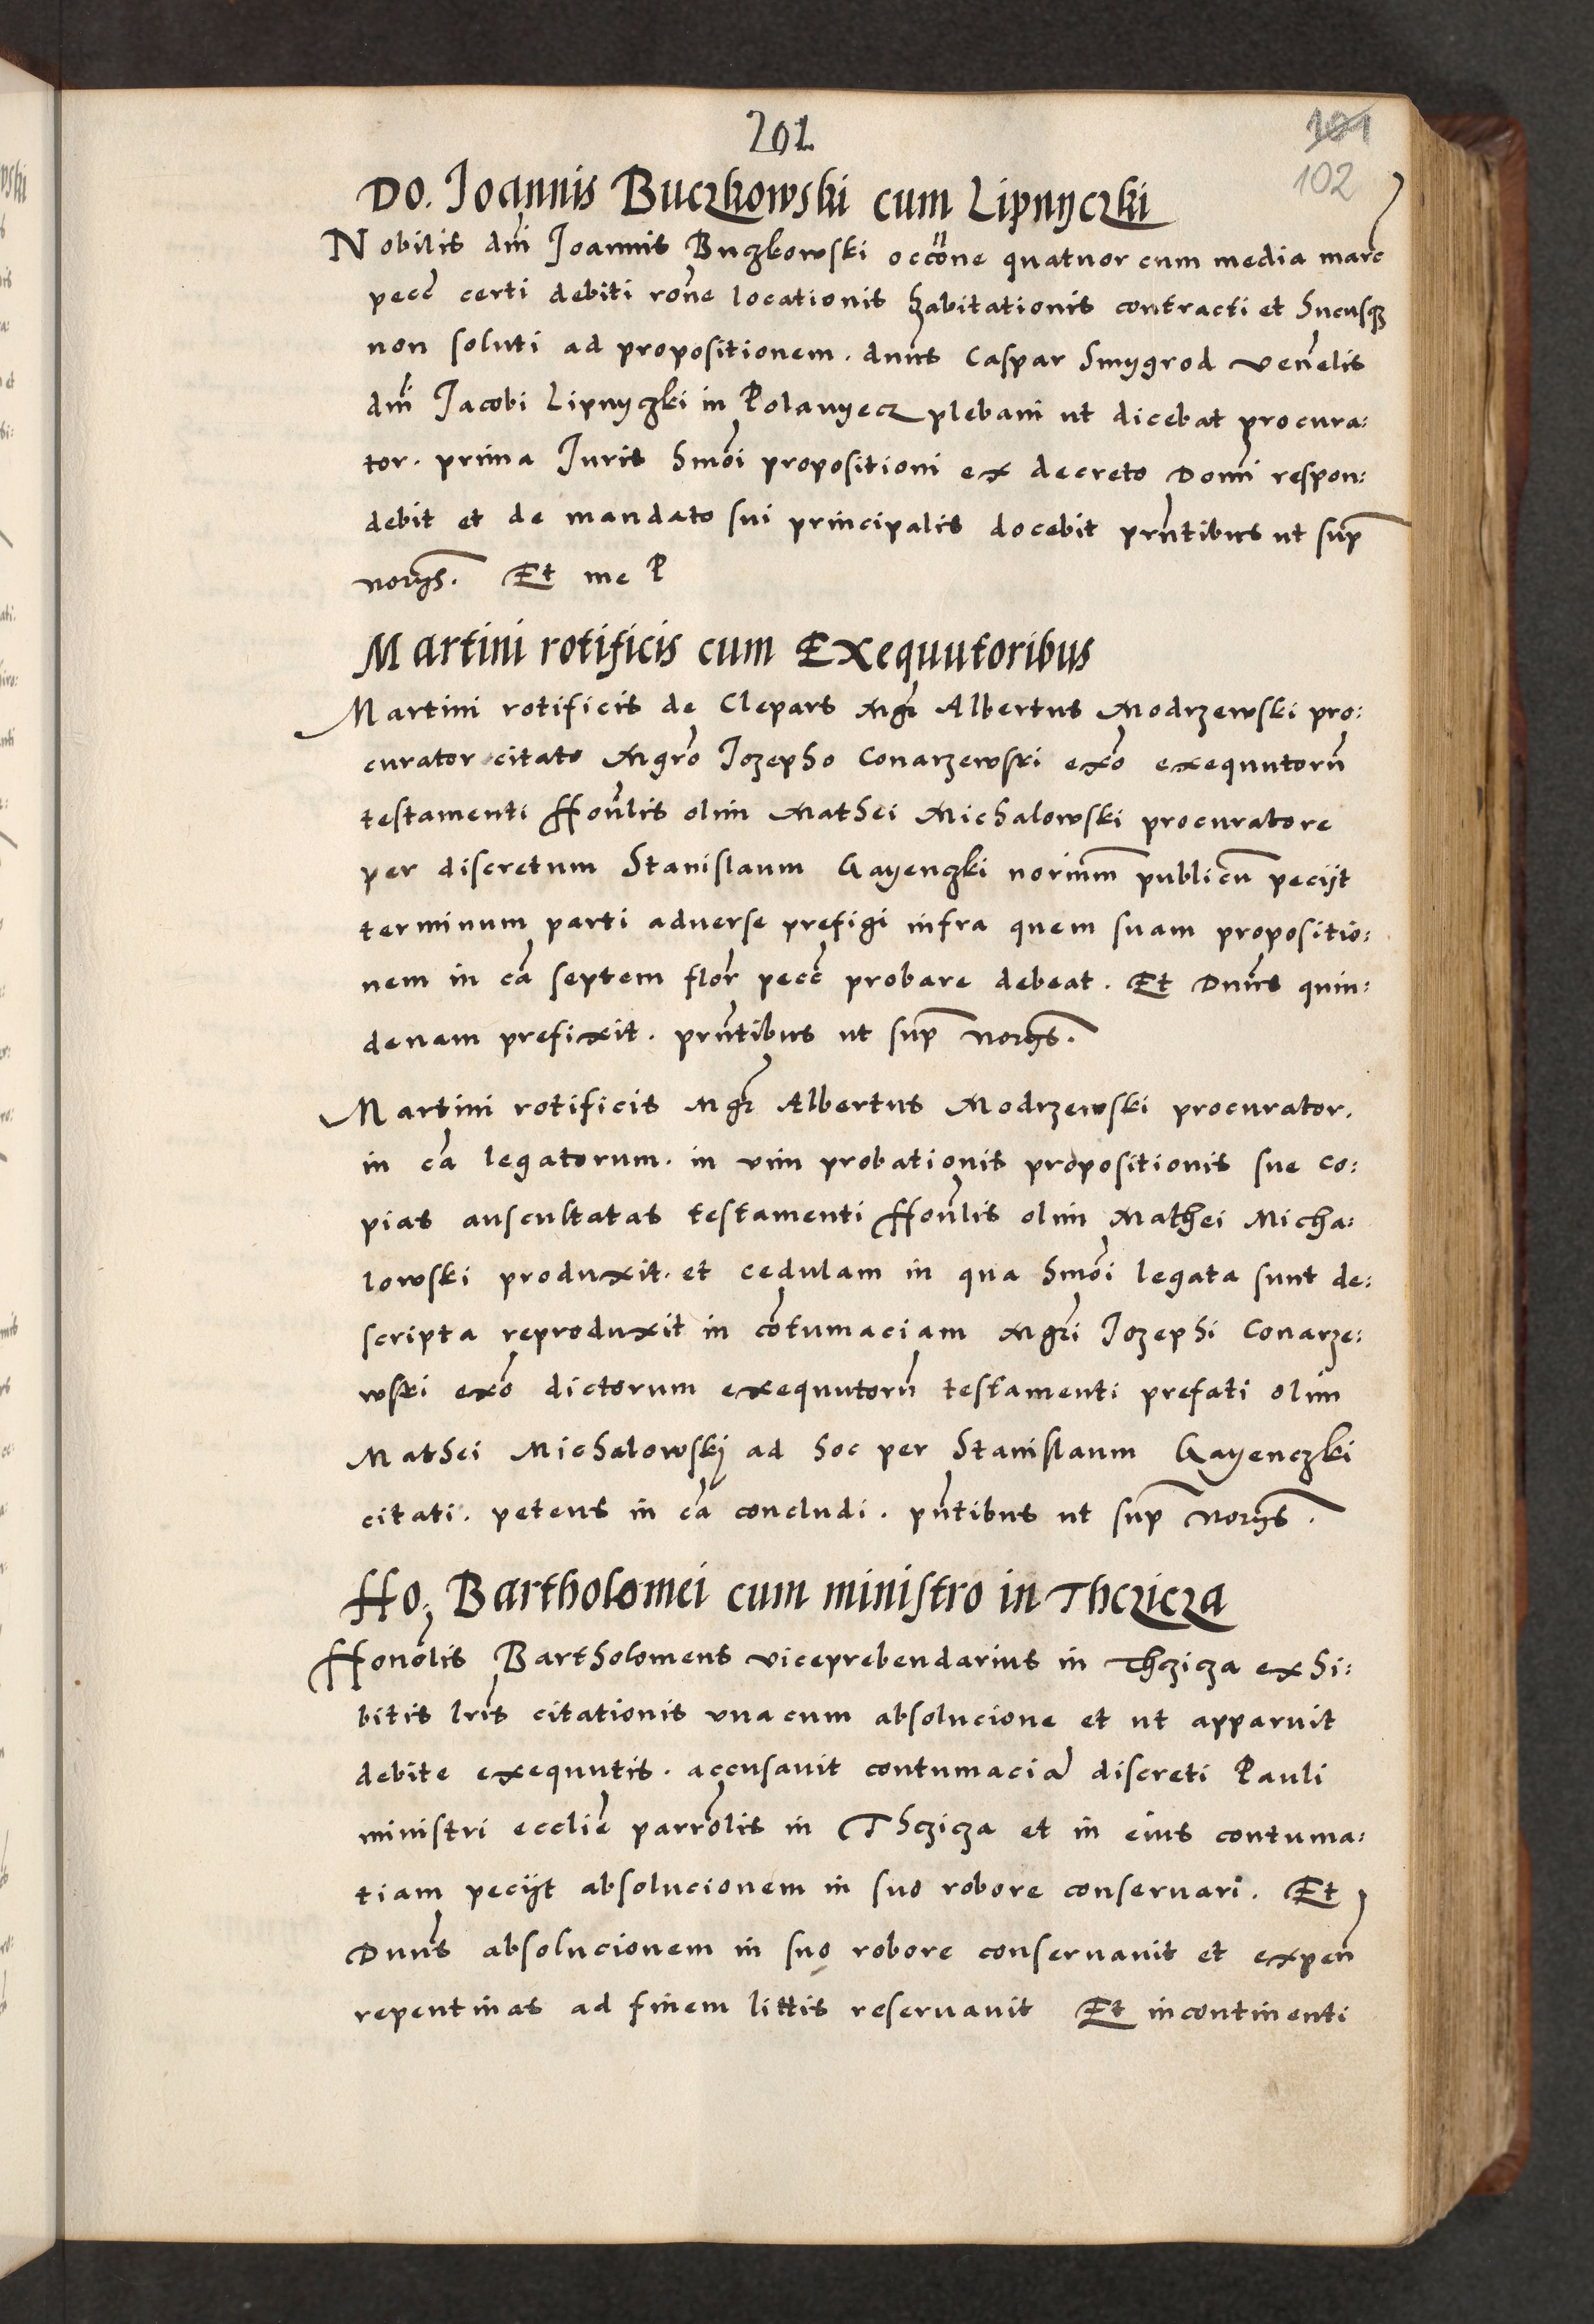 201
101
102
Do. Joannis Buczkowski cum Lipnyczki
Nobilis dni Joannis Buczkowski occone quatuor cum media marc
pecc certi debiti rone locationis habitationis contracti et hucusq
non soluti ad propositionem. dnus Caspar Smygrod venelis
dni Jacobi Lipnyczki in Polanyecz plebani ut dicebat procura:
tor. prima Juris hmoi propositioni ex decreto Domi respon:
debit et de mandato sui principalis docebit prntibus ut sup
norijs. Et me P
Martini rotificis cum Exequutoribus
Martini rotificis de Clepars Mgr Albertus Modrzewski pro:
curator citato Mgro Jozepho Conarzewski exo exequutoru
testamenti Honlis olim Mathei Michalowski procuratore
per discretum Stanislaum Gayenczki norium publicu pecijt
terminum parti adverse prefigi infra quem suam propositio:
nem in ca septem flor pecc probare debeat. Et Dnus quin:
denam prefixit. prntibus ut sup norijs.
Martini rotificis Mgr Albertus Modrzewski procurator.
in ca legatorum. in vim probationis propositionis sue co:
pias auscultatas testamenti Honlis olim Mathei Micha:
lowski produxit. et cedulam in qua hmoi legata sunt de:
scripta reproduxit in cotumaciam Mgri Jozephi Conarze:
wski exo dictorum exequutoru testamenti prefati olim
Mathei Michalowskj ad hoc per Stanislaum Gayenczki
citati. petens in ca concludi. pntibus ut sup norijs.
Ho. Bartholomei cum ministro in Thczicza
Honolis Bartholomeus viceprebendarius in Thczicza exhi:
bitis lris citationis una cum absolucione et ut apparuit
debite exequutis. accusavit contumacia discreti Pauli
ministri ecclie parrolis in Thczicza et in eius contuma:
tiam pecijt absolucionem in suo robore conseruari. Et
Dnus absolucionem in suo robore conseruauit et expen
repentinas ad finem littis reseruauit Et incontinenti